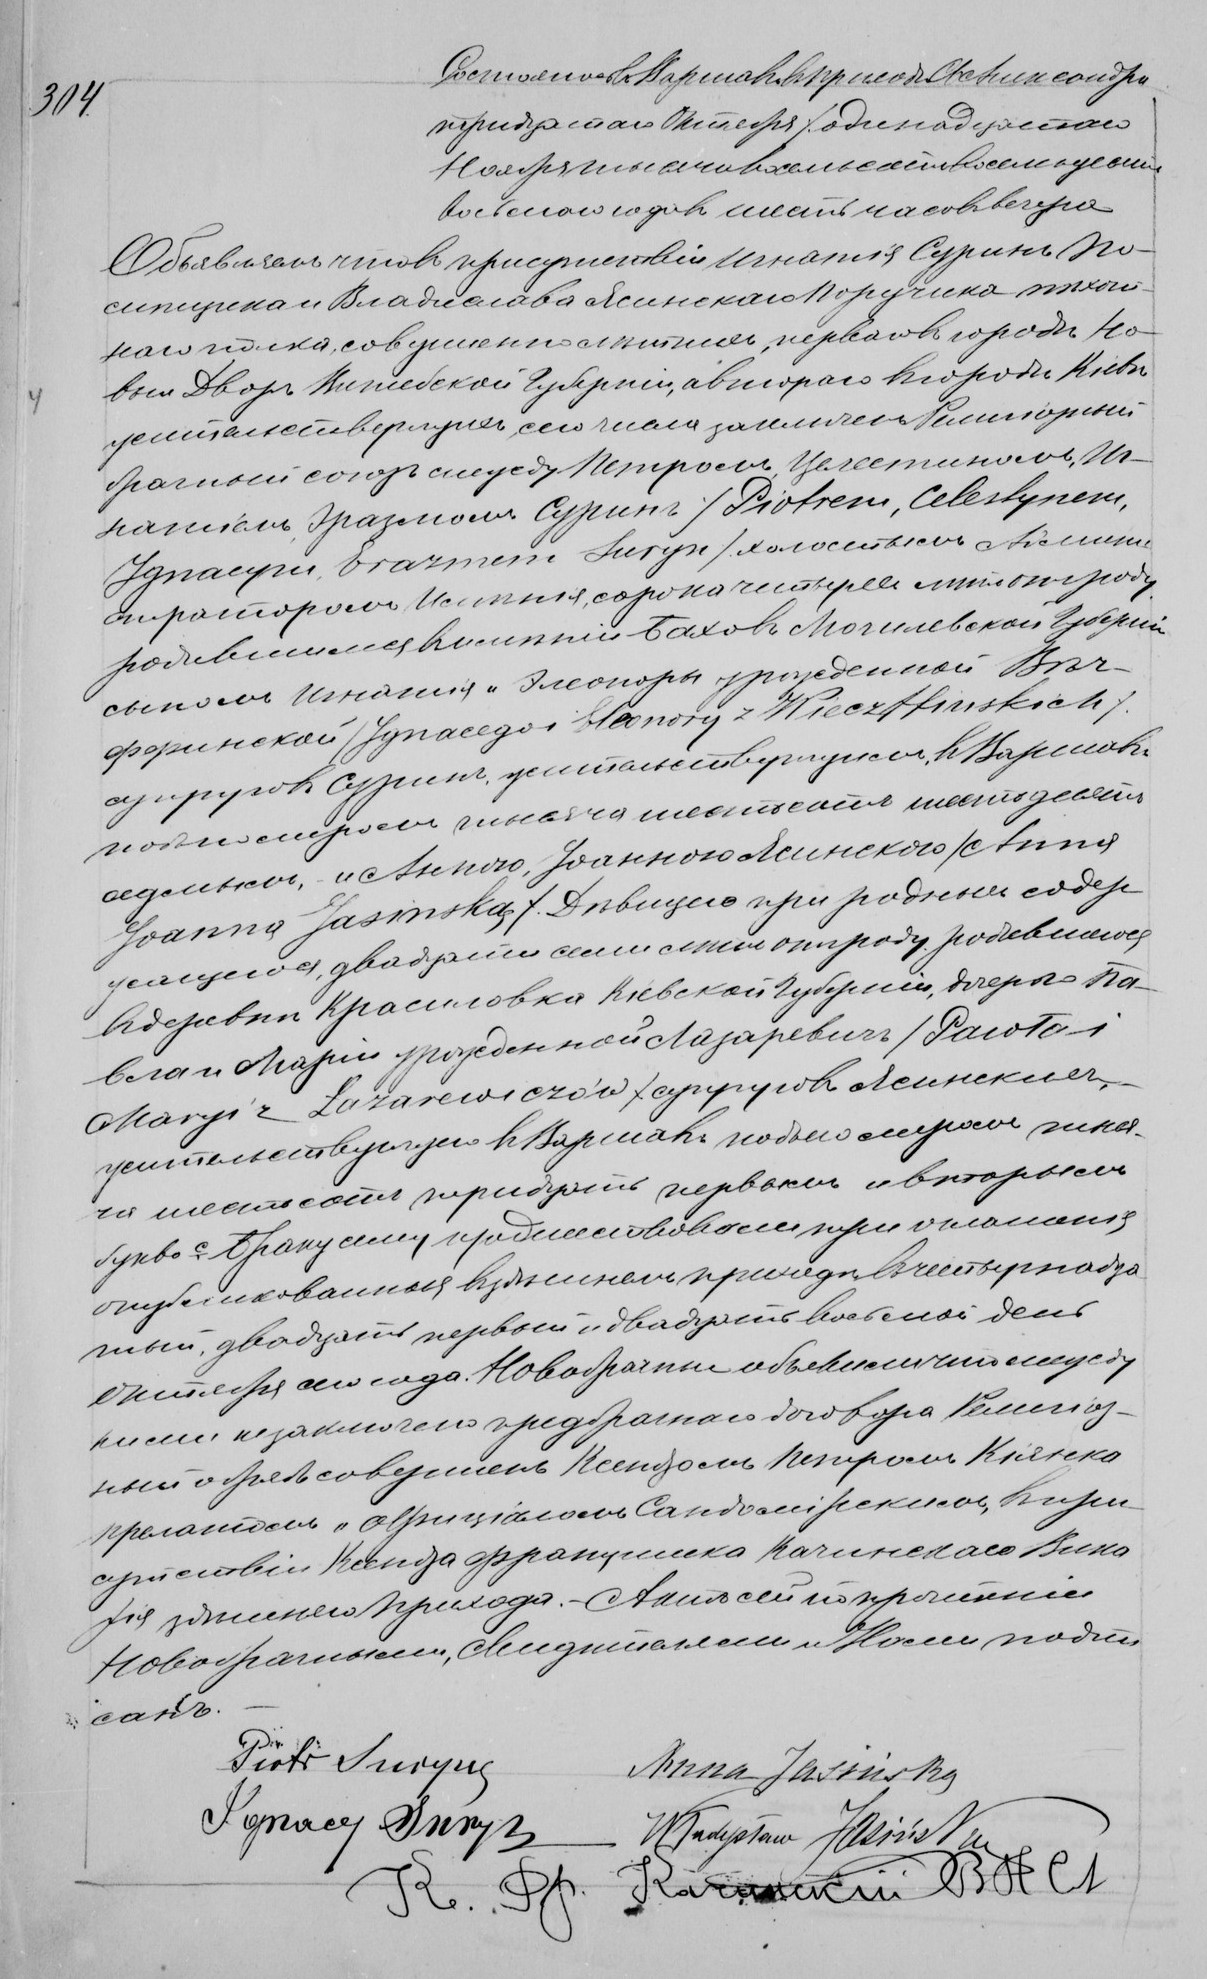 304.
Состоялось въ Варшавѣ въ приходѣ Св. Александра
тридцатаго Октября /:одинадцатаго
Ноября тысяча восемьсотъ восемьдесятъ
восьмаго года въ шесть часовъ вечера
Объявляемъ что въ присутствіи Игнатія Суринъ По-
 и Владислава Ясинскаго Поручика пѣхот-
наго полка, совершеннолѣтнихъ, перваго въ городѣ Но-
вый Дворъ Витебской Губерніи, а втораго въ городѣ Кіевѣ
жительствующихъ, сего числа заключенъ Религіозный
брачный союзъ между Петромъ, Целестиномъ, Иг-
натіемъ, Эразмомъ Суринъ /Piotrem, Celestynem,
Ignacym, Erazmem Suryn/ холостымъ Админи-
страторомъ Имѣнія, сорока четырехъ лѣтъ отъ роду
родившимся въ имѣніи Бахово Могилевской Губерніи
сыномъ Игнатія и Элеоноры урожденной Вѣч-
ффинской /Ignacego i Eleonory z Wieczffinskich/.
супруговъ Суринъ, жительствующимъ въ Варшавѣ
подъ номеромъ тысяча шестьсотъ шестьдесятъ
седьмымъ, и Анною, Іоанною Ясинскою /Anną
Joanną Jasinską/. Дѣвицею при родныхъ содер-
жащеюся, двадцати семи лѣтъ отъ роду родившеюся
въ деревни Красиловка Кіевской Губерніи, дочерью Па-
вла и Маріи урожденной Лазаревичъ /Pawła i
Maryi z Lazarewiczów/ супруговъ Ясинскихъ,
жительствующею въ Варшавѣ подъ номеромъ тыся-
ча шестьсотъ тридцать первымъ и вторымъ
буква с. Браку сему предшествовали три оглашенія
опубликованныя въ здѣшнемъ приходѣ въ четырнадца-
тый, двадцать первый и двадцать восьмой день
Октября сего года. Новобрачные объявили что между
ними незаключено предбрачнаго договора Религіоз-
ный обрядъ совершенъ Ксендзомъ Петромъ Кіянка
прелатомъ и оффиціаломъ Сандомірскимъ, въ при-
сутствіи Ксендза Францишка Качинскаго Вика-
рія здѣшняго прихода. - Актъ сей по прочтеніи
Новобрачными, Свидѣтелями и Нами подпи-
санъ. -
Piotr Suryn Anna Jasińska
Ignacy Suryn Władysław Jasiński
К. Фр. Качинскій